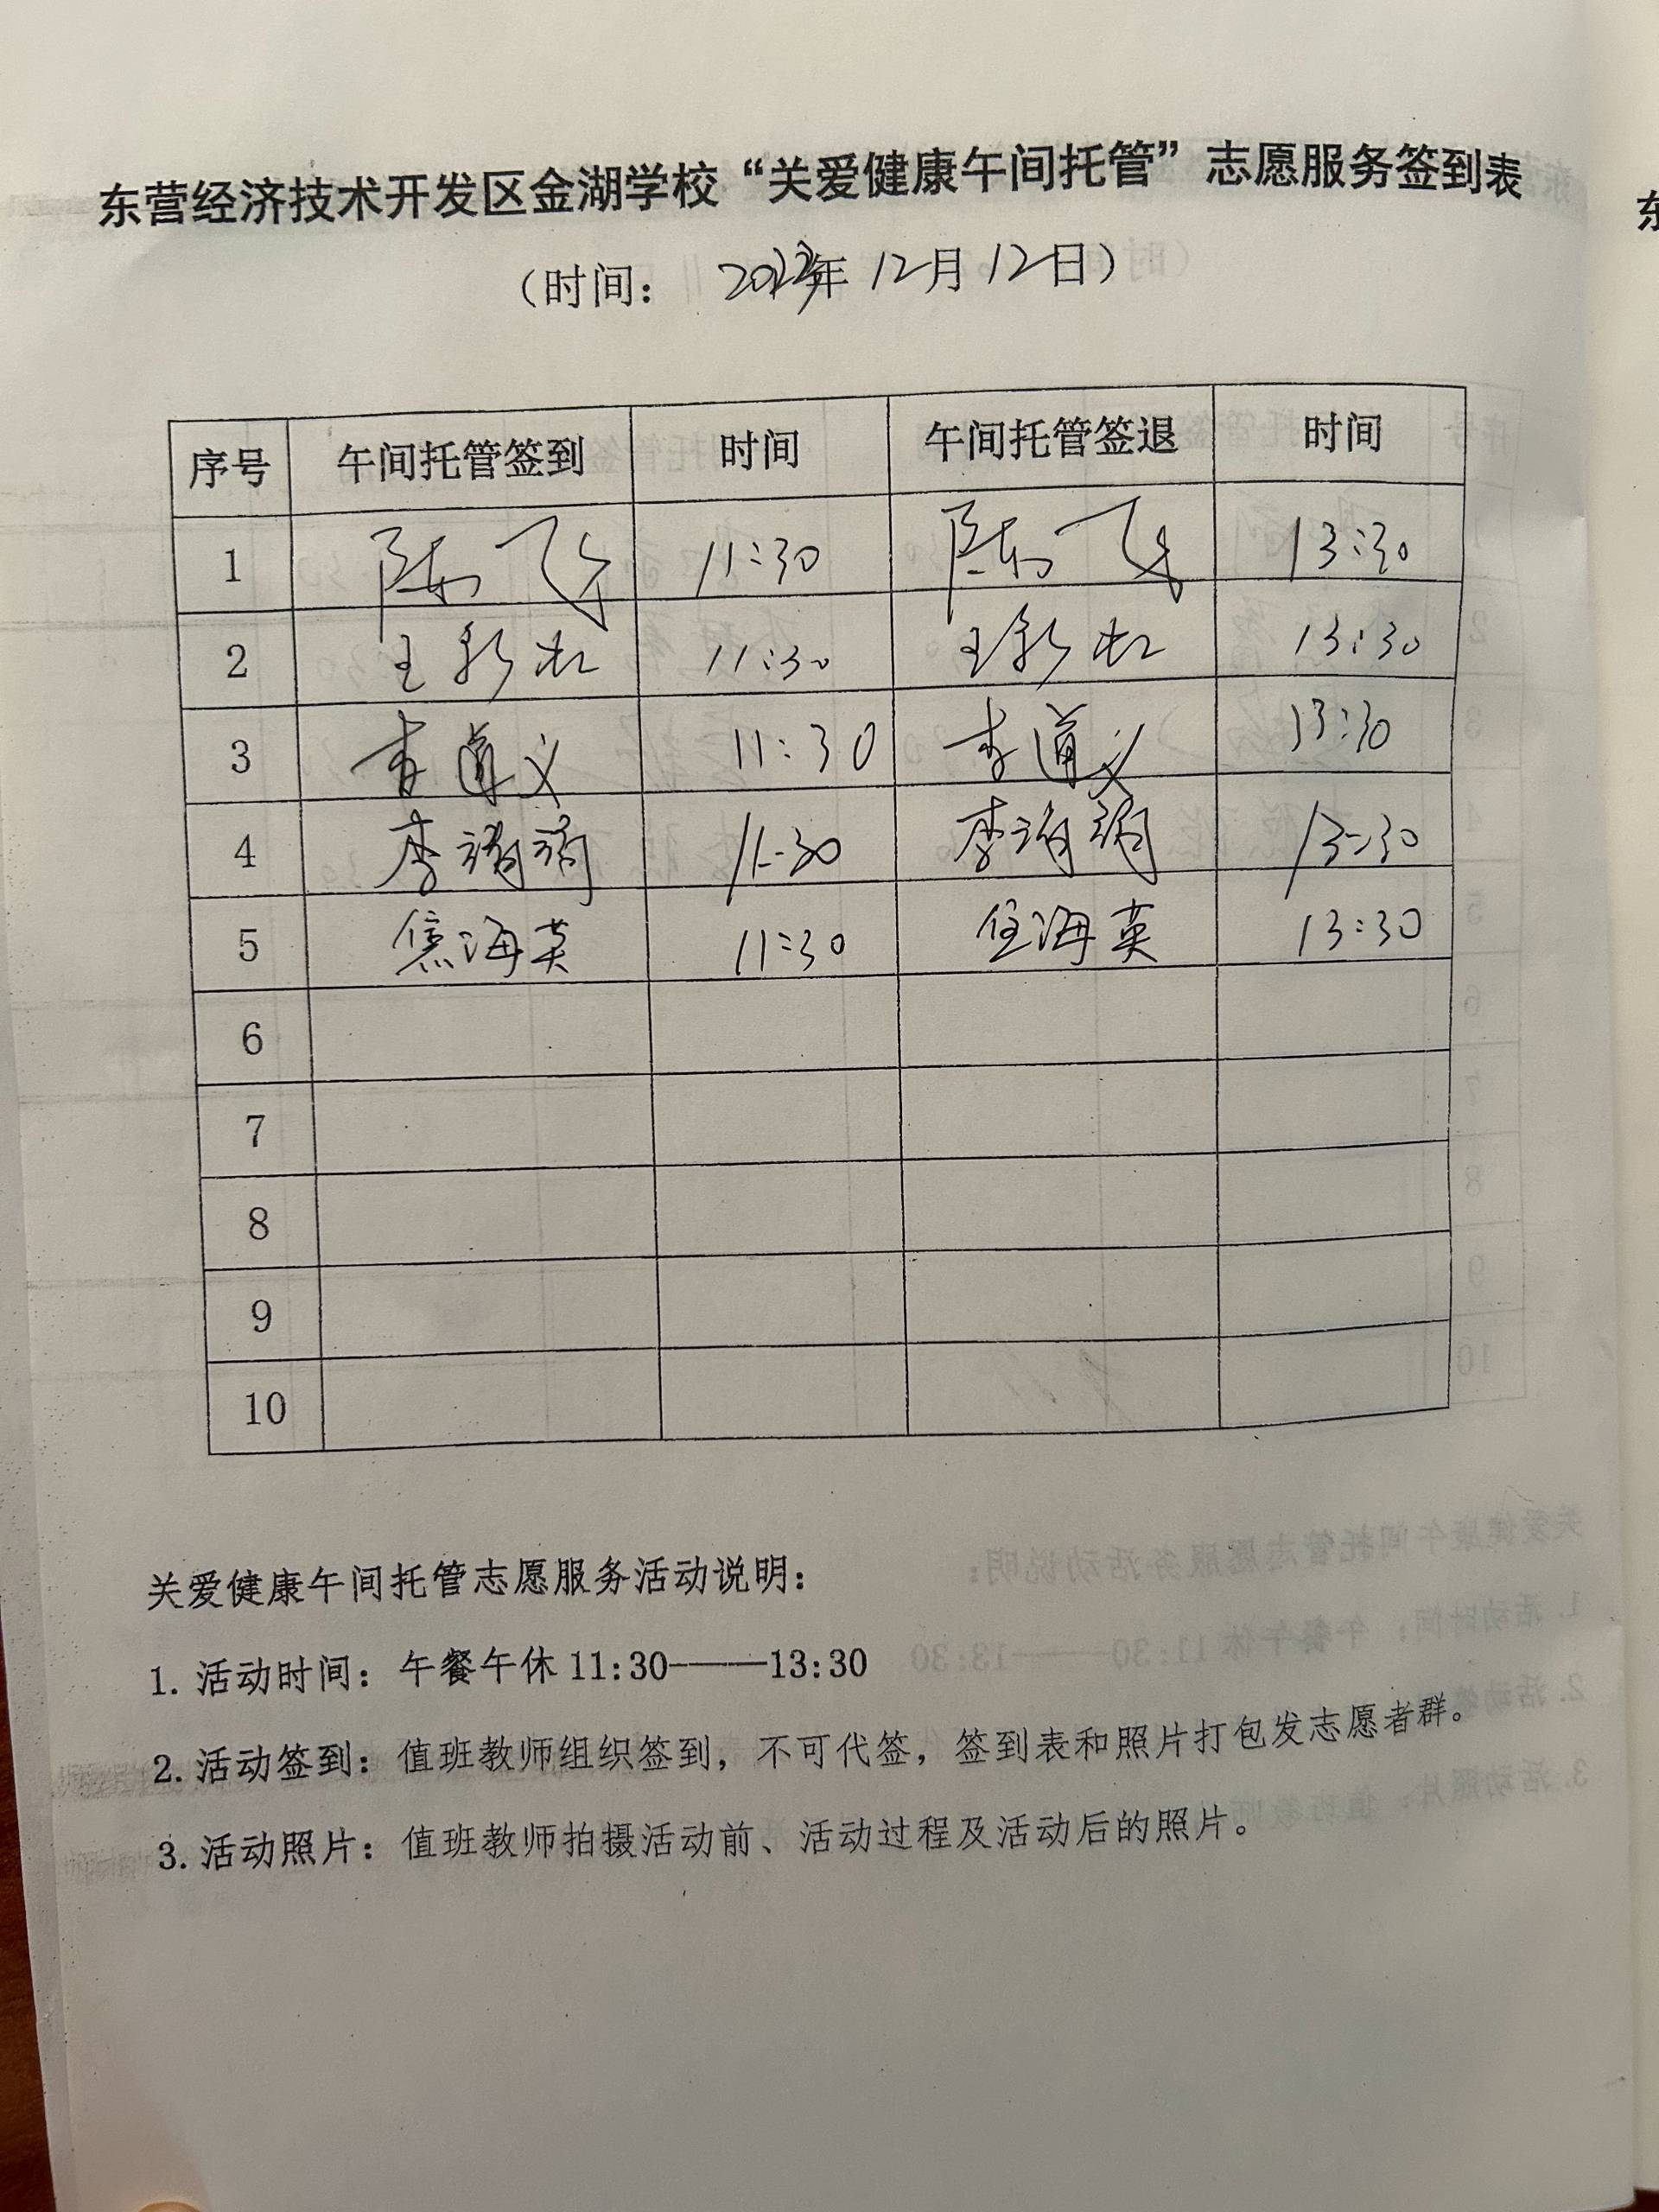 东营经济技术开发区金湖学校“关爱健康午间托管”志愿服务签到表
（时间： 2023年12月12日）
序号 午间托管签到 时间 午间托管签退 时间
1 陈飞 11:30 陈飞 13:30
2 王彩虹 11:30 王彩虹 13:30
3 李道义 11:30 李道义 13:30
4 李 11:30 李 13:30
5 焦海英 11:30 焦海英 13:30
6
7
8
9
10
关爱健康午间托管志愿服务活动说明：
1. 活动时间：午餐午休 11:30——13:30
2. 活动签到：值班教师组织签到，不可代签，签到表和照片打包发志愿者群。
3. 活动照片：值班教师拍摄活动前、活动过程及活动后的照片。
东